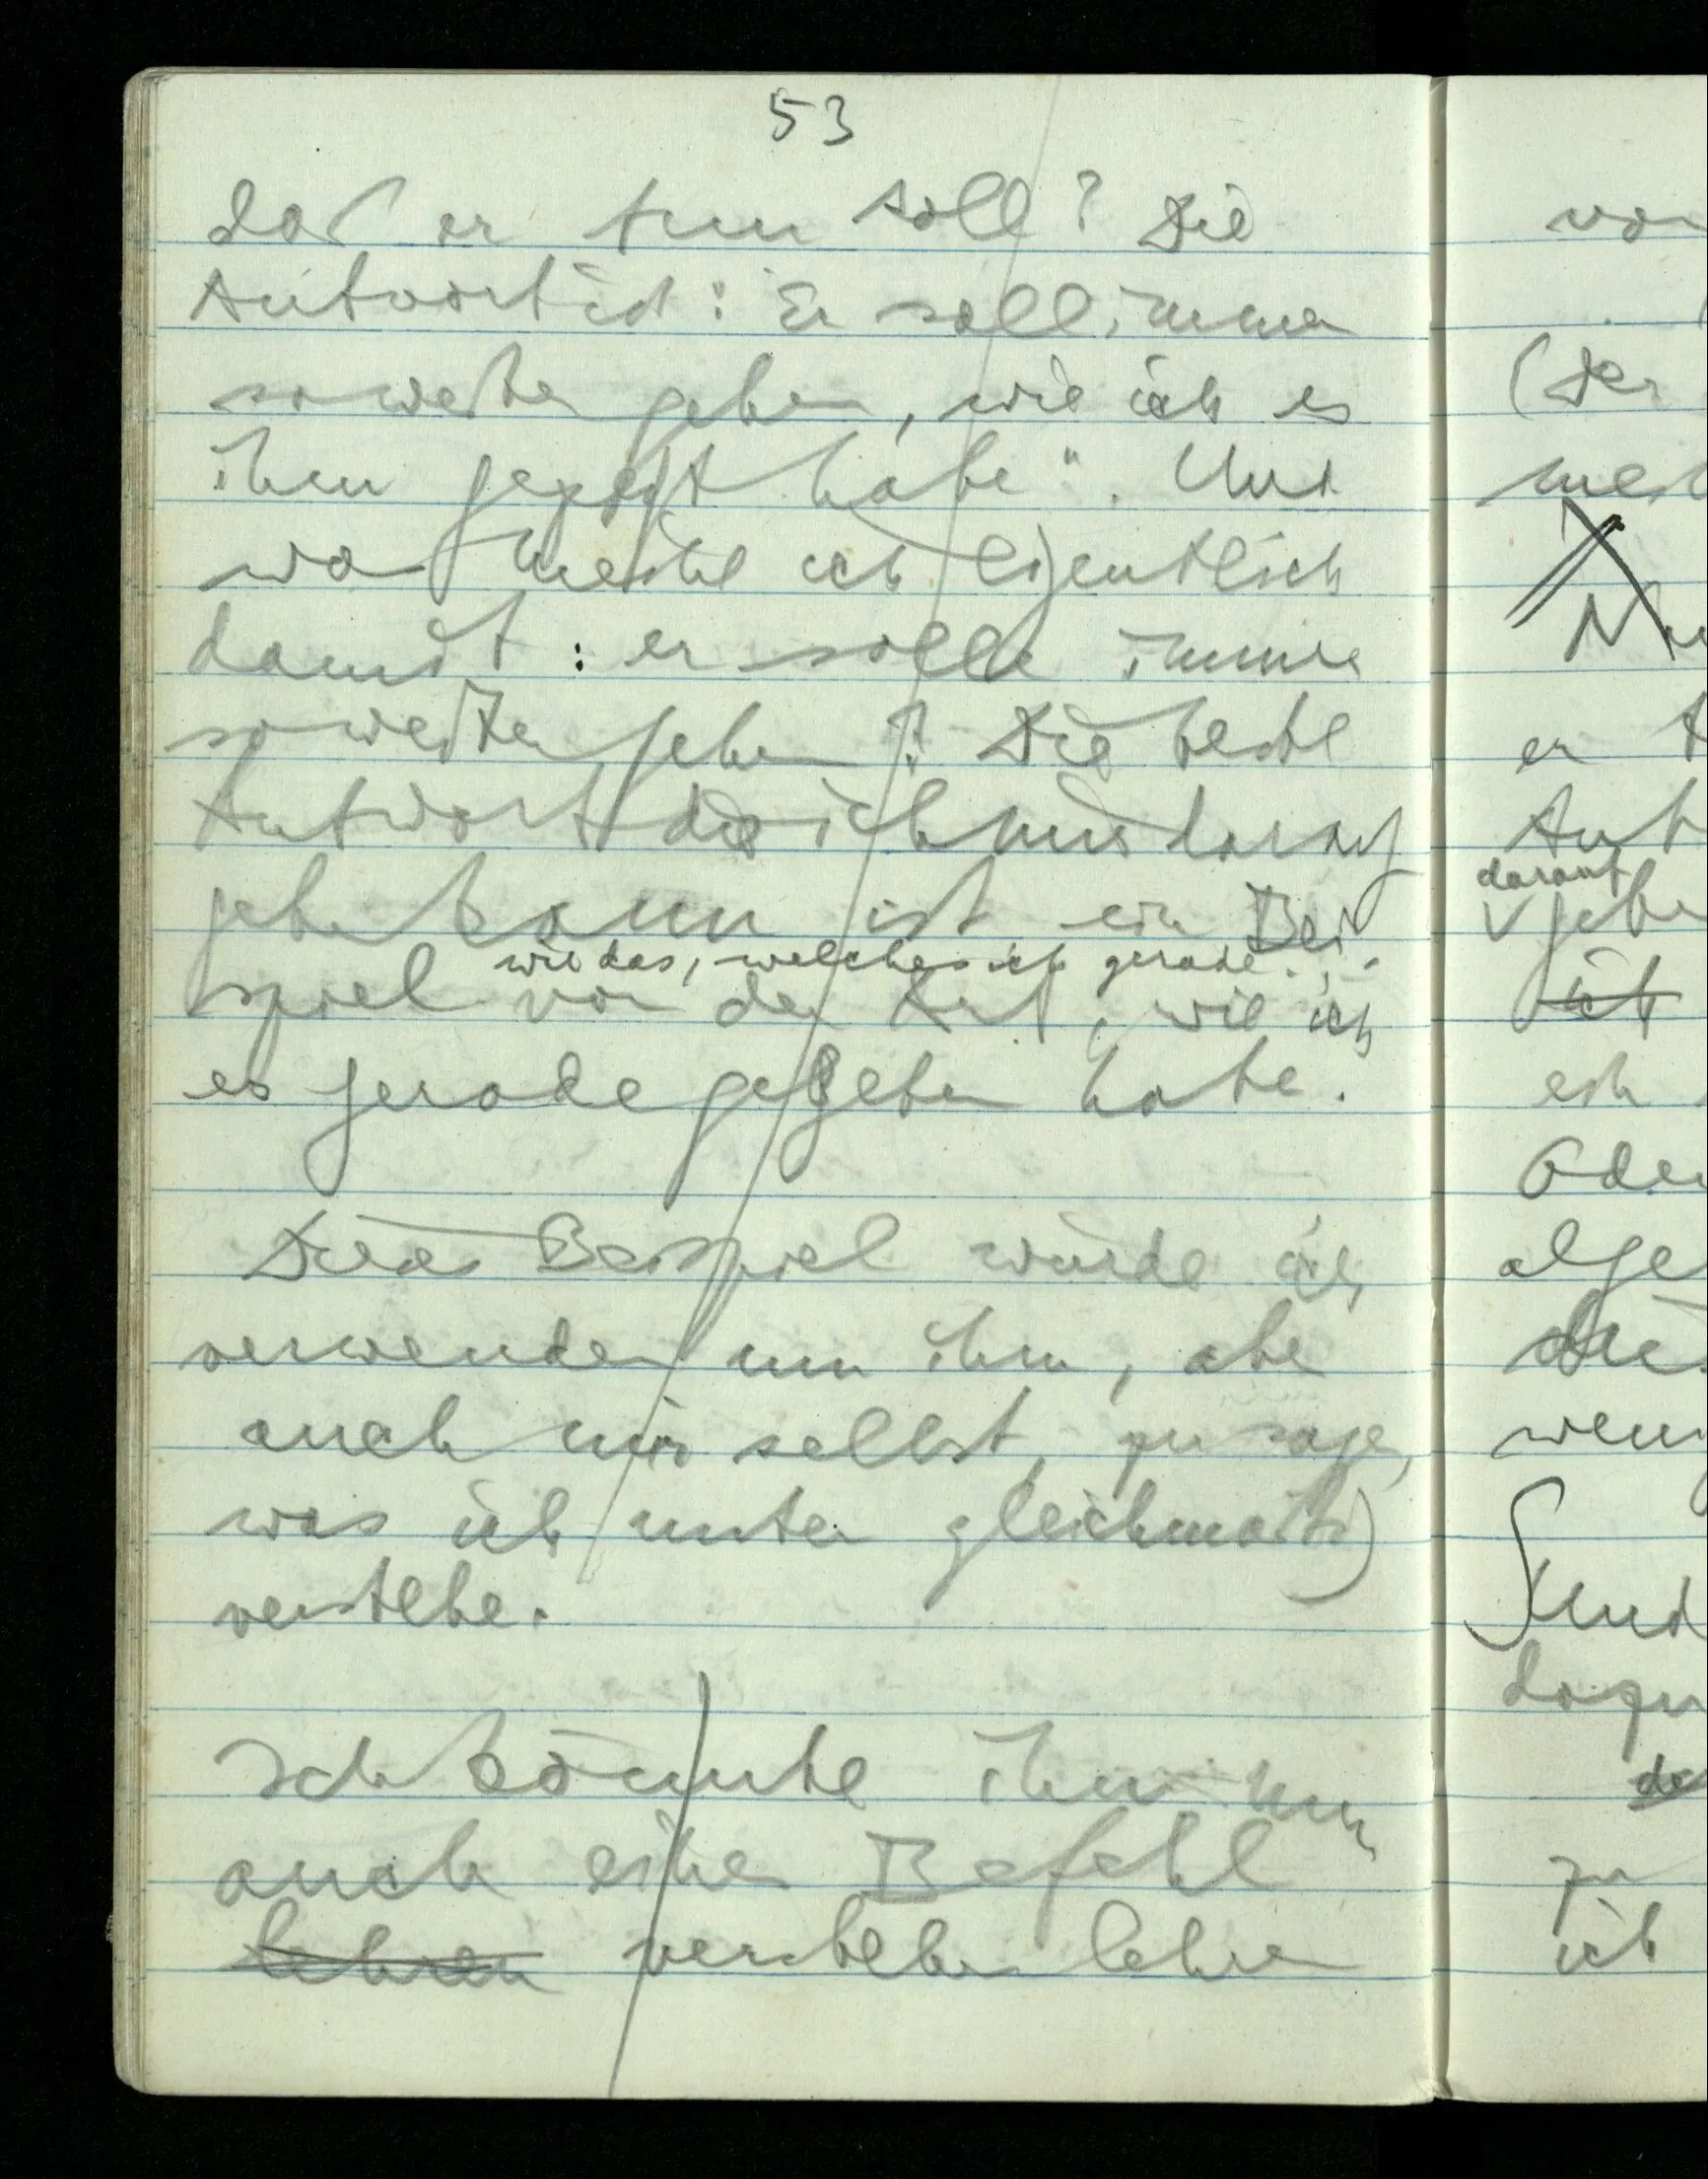 53
daß er tun soll? Die
Antwort ist: Er soll immer
so weiter gehen, wie ich es
ihm gezeigt habe". Und
was meine ich eigentlich
damit: er solle immer
so weiter gehen? Die beste
Antwort die ich mir darauf
geben kann ist ein Bei-
wie das, welches ich gerade . . .
spiel von der Art, wie ich
es gerade gegeben habe.
Dieses Beispiel würde ich
verwenden um ihm, aber
auch mir selbst, zu sagen,
was ich unter gleichmäßig
verstehe.
Ich könnte ihm nun
auch einen Befehl
lehren verstehen lehren
vor
(Der
er
darauf
ich